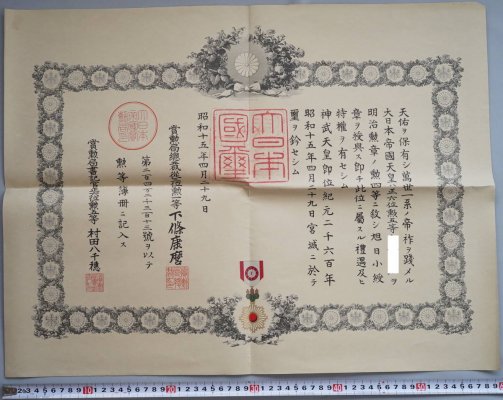 天佑ヲ保有シ萬世一系ノ帝祚ヲ踐メル
大日本帝國天皇ハ正六位勲五等
ヲ
明治勲章ノ勲四等ニ敘シ旭日小綬
章ヲ授與ス即チ此位ニ屬スル禮遇及ヒ
特權ヲ有セシム
神武天皇即位紀元二千六百年
昭和十五年四月二十九日宮城ニ於テ
璽ヲ鈐セシム
大日本
國璽
昭和十五年四月二十九日
賞勲局總裁從三位勲二等下條康麿
第二百四十三万三百十三號ヲ以テ
勲等簿册ニ記入ス
賞勲局書記官正六位勲五等村田八千穂